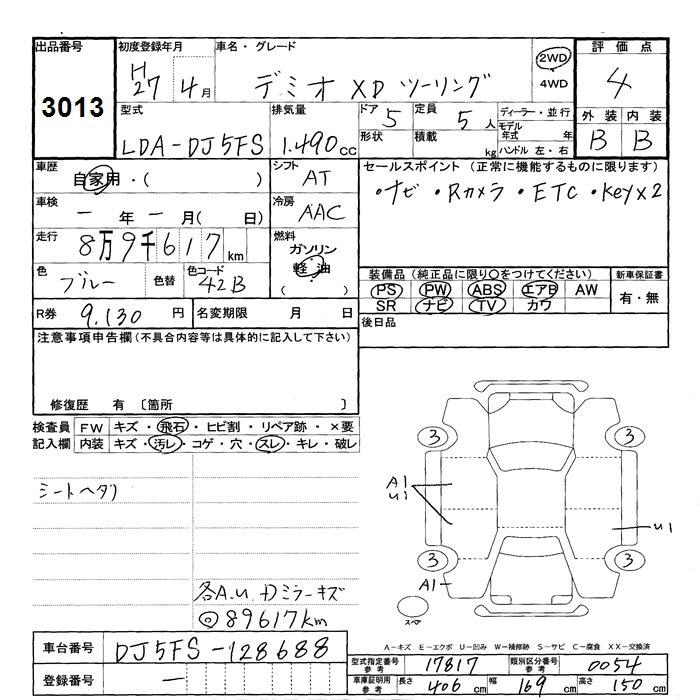 出品番号 初度登録年月 車名・グレード 評価点
3013 H27 4月 デミオ XD ツーリング 2WD 4WD 4
型式 排気量 ドア 5 定員 5人 ディーラー・並行 外装 内装
LDA-DJ5FS 1.490cc 形状 積載 kg モデル年式 年 B B
ハンドル 左・右
車歴 自家用・( ) シフト AT セールスポイント (正常に機能するものに限ります)
・ナビ ・Rカメラ ・ETC ・Keyx2
車検 一年一月( 日) 冷房 AAC
走行 8万9千617km 燃料 ガソリン 軽油 ( )
色 ブルー 色替 色コード 42B
装備品 (純正品に限り○をつけてください) 新車保証書
PS PW ABS エアB AW 有・無
SR ナビ TV カワ
R券 9.130円 名変期限 月 日 後日品
注意事項申告欄 (不具合内容等は具体的に記入して下さい)
修復歴 有 〔箇所 〕
検査員 FW キズ・飛石・ヒビ割・リペア跡・×要
記入欄 内装 キズ・汚レ・コゲ・穴・スレ・キレ・破レ
シートヘタリ
3 3
A1
U1
U1
3 3
A1
スペア
各A.U ミラーキズ
◎89617km
A-キズ E-エクボ U-凹み W-補修跡 S-サビ C-腐食 XX-交換済
車台番号 DJ5FS-128688
型式指定番号 参考 17817 類別区分番号 参考 0054
登録番号 一
車庫証明用 参考 長さ 406cm 幅 169cm 高さ 150cm